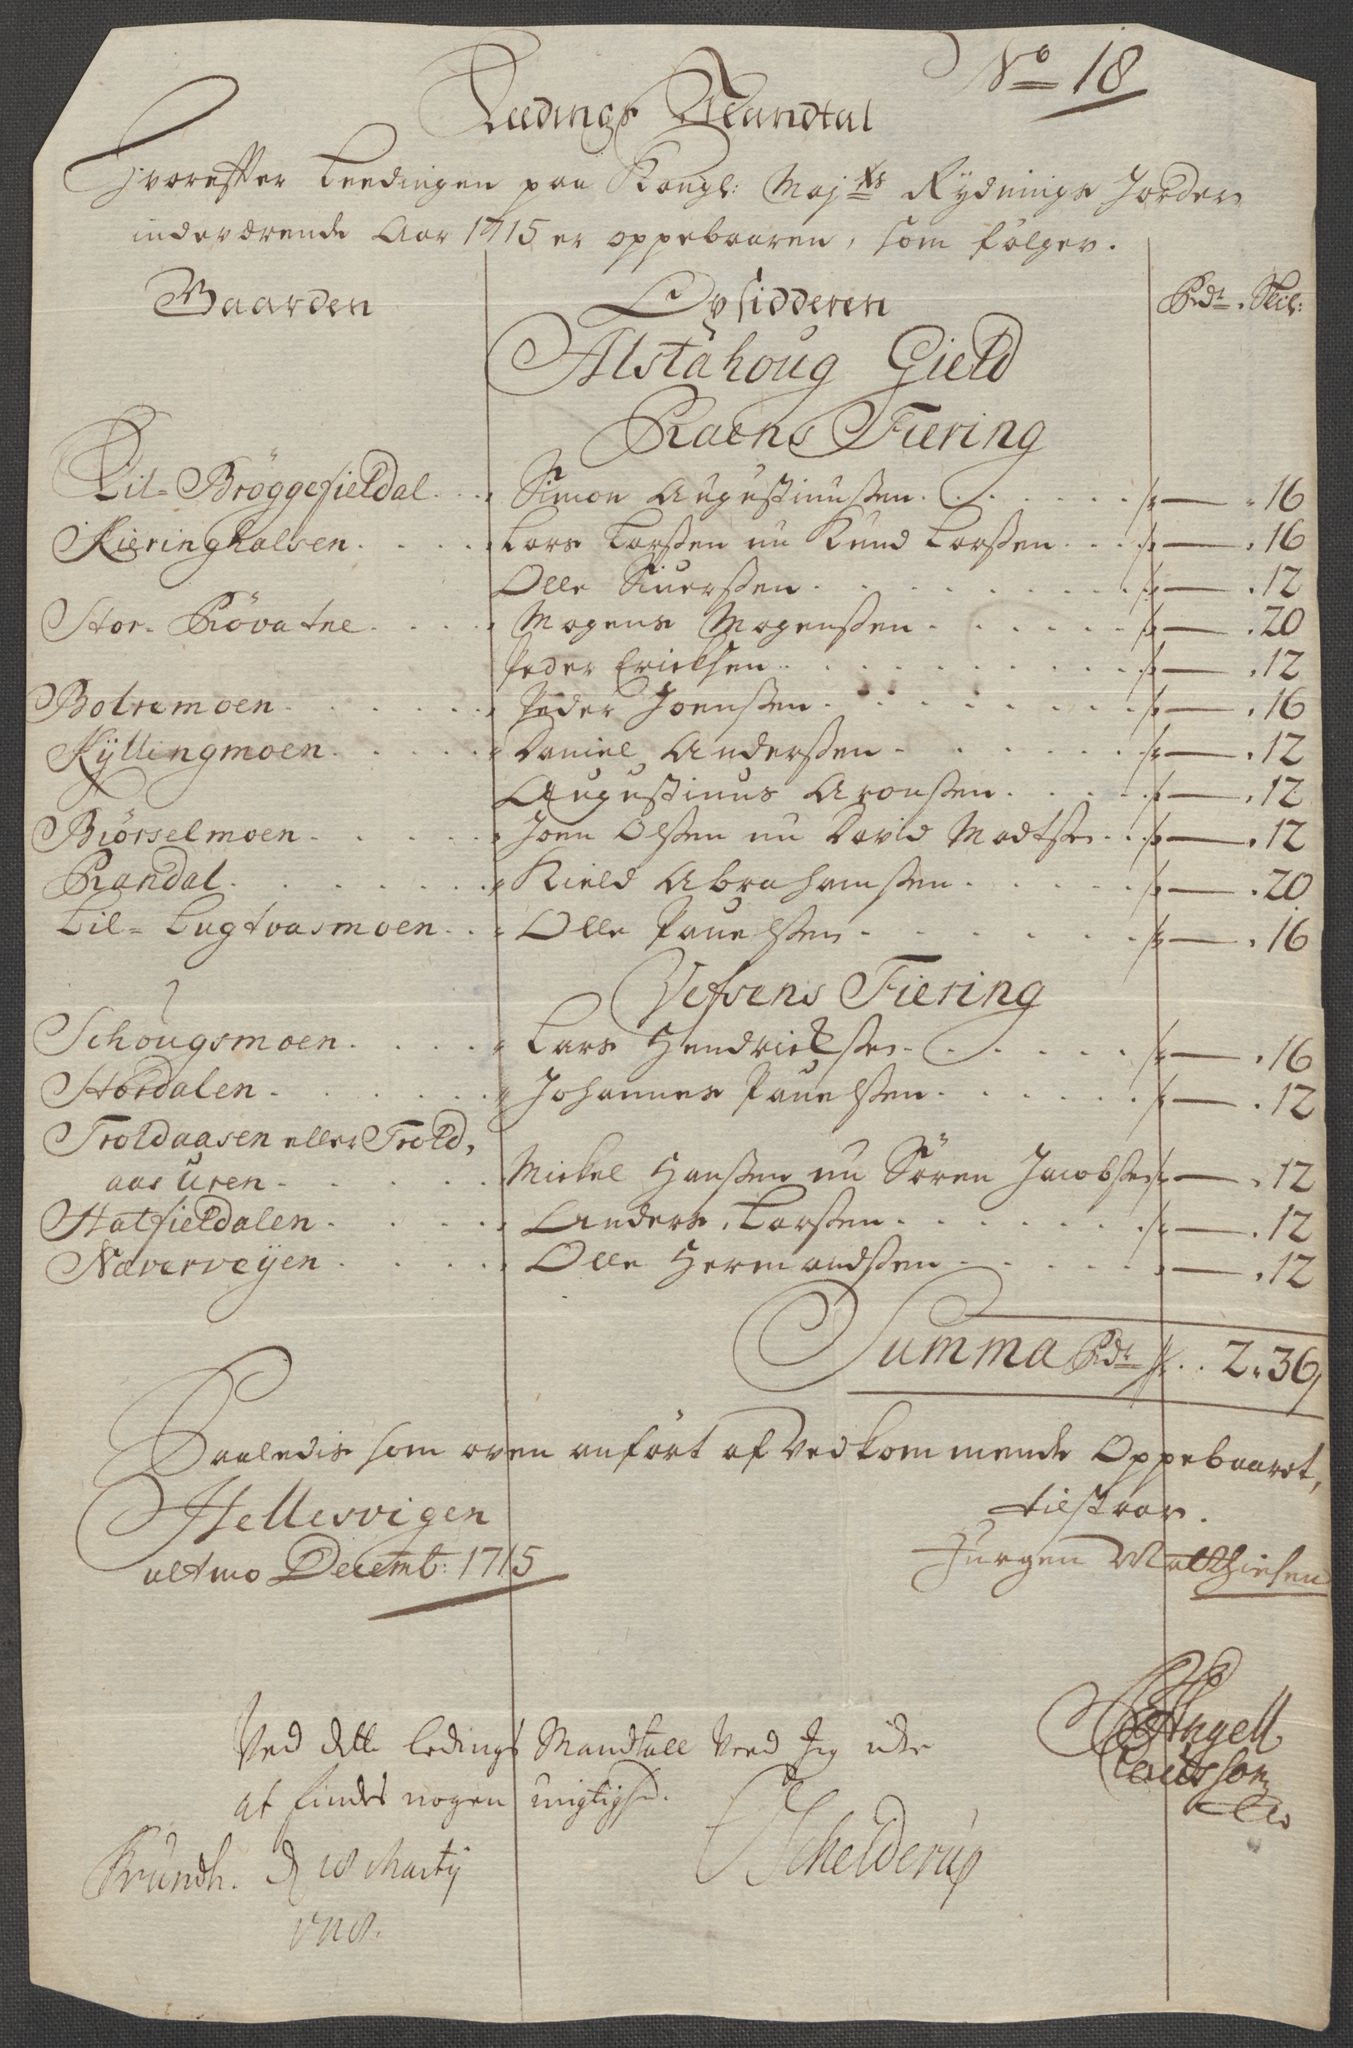 No 18
Leedings Mandtal
Hvorefter Leedingen paa Kongl: Majts Rydnings Jorder
indeværende Aar 1715 er oppebaaren, som følger.
Gaarden Opsidderen Rdr. Skil:
Alstahoug Gield
Raens Fiering
Lil- Brøggefieldal Simon Augustinussen 16
Kieringhalsen Lars Larssen nu Knud Larssen 16
Olle Siuerssen 12
Stor- Røvatne Mogens Mogenssen 20
Peder Ericksen 12
Bolremoen Peder Joenssen 16
Kyllingmoen Daniel Anderssen 12
Augustinus Aronssen 12
Biørselmoen Joen Olssen nu David Madtsen 12
Randal Kield Abrahamssen 20
Lil- Lugtvasmoen Olle Pauelssen 16
Vefsens Fiering
Schougsmoen Lars Hendrickssen 16
Stordalen Johannes Pauelssen 12
Troldaasen eller Trold,
aas Uren Mickel Hanssen nu Sören Jacobsen 12
Hatfieldalen Anders Larssen 12
Næverveyen Olle Hermandssen 12
Summa Rdr 2. 36
Saaledis som oven anført af vedkommende Oppebaaret,
tilstaar.
Hellesvigen
ultmo Decemb: 1715
Jurgen Matthiesen
Ved dette ledings Mandtall Veed Jeg icke
at findes nogen urigtighd.
EAngell
Schelderup
d 18 Marty
1718.